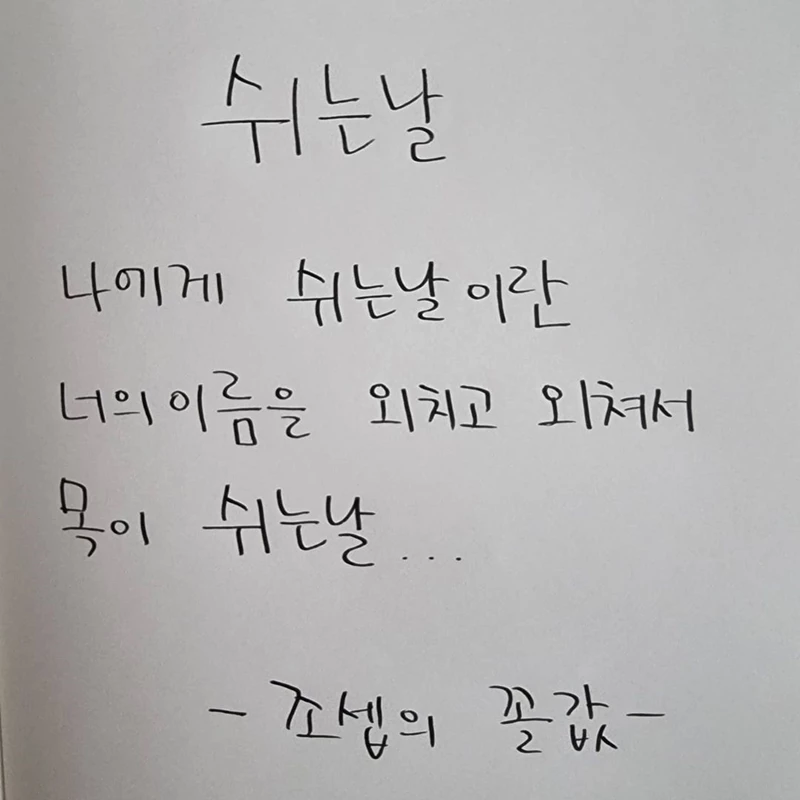 쉬는날
나에게 쉬는날이란
너의이름을 외치고 외쳐서
목이 쉬는날...
- 조셉의 꼴값 -